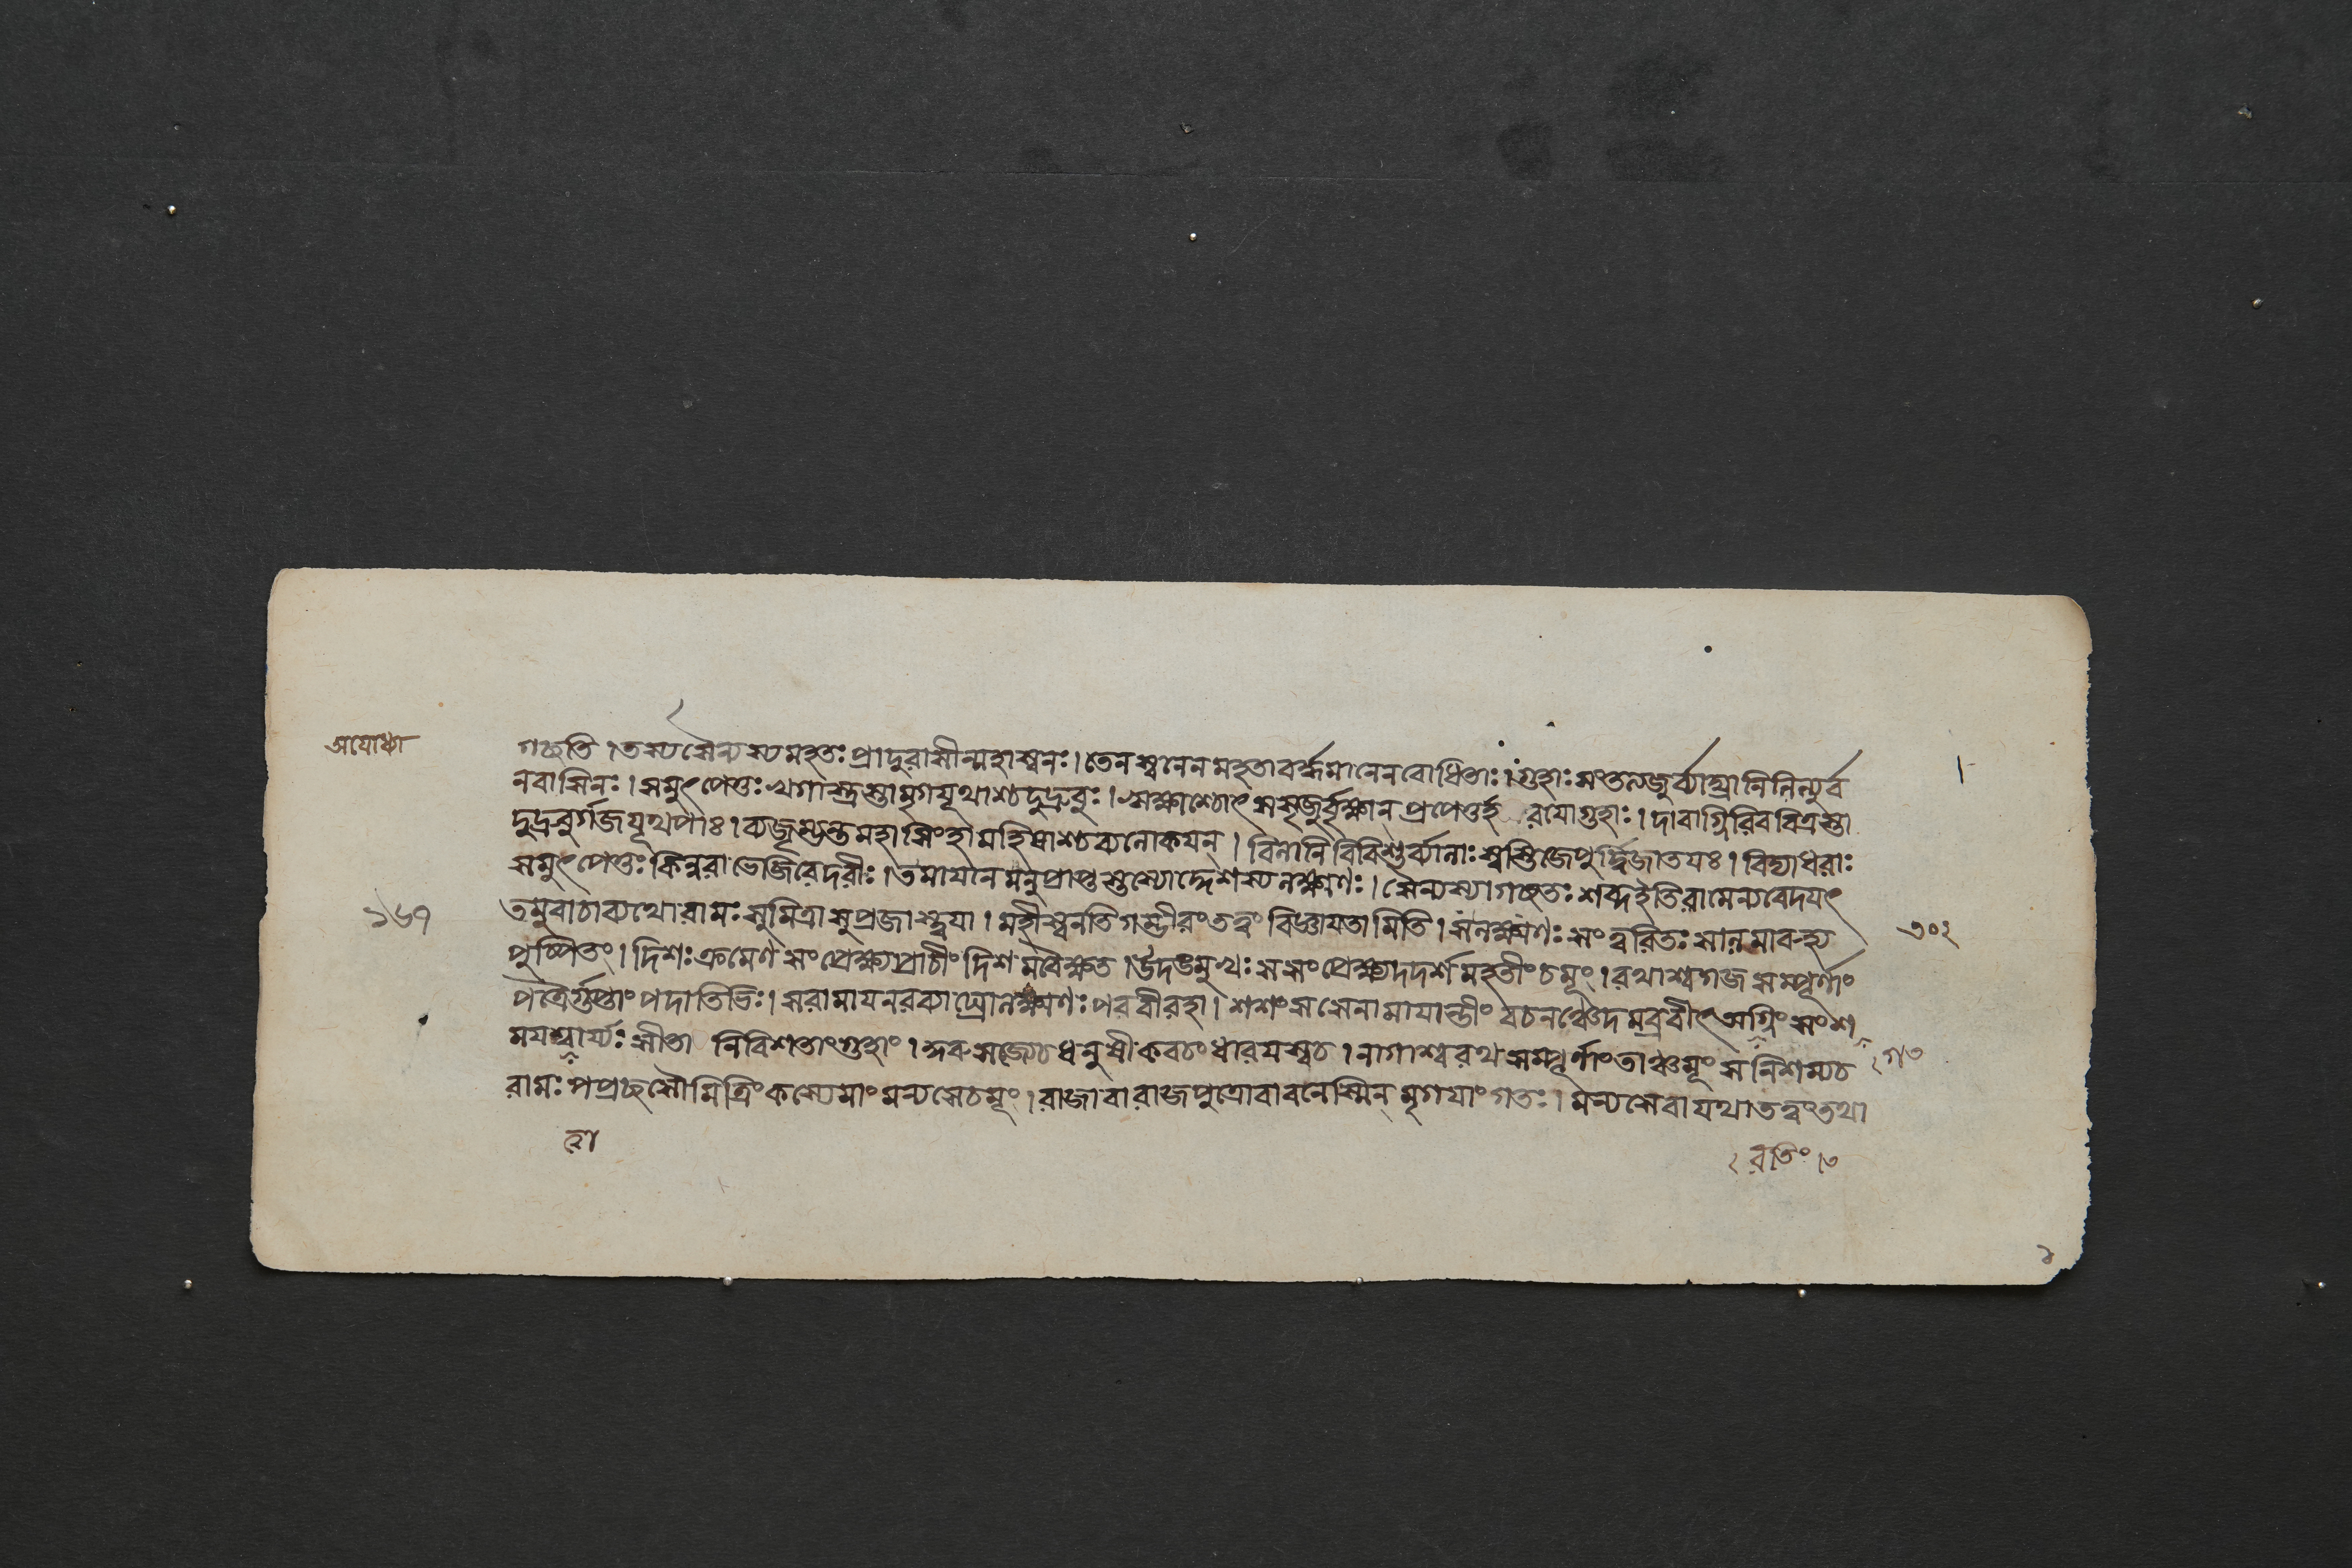 অযোধ্যা
গচ্ছতি।তস্যসৈন্যস্যমহতঃপ্রাদুরাসীন্মহাস্বনঃ।তেনস্বনেনমহতাবর্দ্ধমানেনবোধিতাঃ।গুহাঃসংতত্যজুর্ব্যাঘ্রানিলিল্যুর্ব
নবাসিনঃ।সমুৎপেতুঃখগাস্ত্রস্তামৃগযূথাশ্চদুদ্রুবুঃ।ঋক্ষাশ্চোৎসসৃজুর্বৃক্ষান্প্রপেতুর্হরযোগুহাঃ।দাবাগ্নিরিববিত্রস্তা
দুদ্রুবুর্গজযূথপাঃ।ব্যজৃম্ভন্তমহাসিংহামহিষাশ্চব্যলোকযন্।বিলানিবিবিশুর্ব্যালাঃস্বস্তিজেপুর্দ্বিজাতযঃ।বিদ্যাধরাঃ
সমুৎপেতুঃকিন্নরাভেজিরেদরীঃ।তমাযান্তমনুপ্রাপ্তস্তস্যোদ্দেশস্যলক্ষ্মণঃ।সৈন্যস্যাগচ্ছতঃশব্দইতিরামেন্যবেদযৎ
১৬৭
তমুবাচাব্যথোরামঃসুমিত্রাসুপ্রজাস্ত্বযা।মহীস্বনতিগম্ভীরংতত্ত্বংবিজ্ঞাযতামিতি।সলক্ষ্মণঃসংত্বরিতঃসালমারুহ্য
৩০২
পুষ্পিতং।দিশঃক্রমেণসংপ্রেক্ষ্যপ্রাচীংদিশমবৈক্ষত।উদঙমুখঃসসংপ্রেক্ষ্যদদর্শমহতীংচমূং।রথাশ্বগজসম্পূর্ণাং
পত্রৈর্গুপ্তাংপদাতিভিঃ।সরামাযনরব্যাঘ্রোলক্ষ্মণঃপরবীরহা।শশংসসেনামাযান্তীংবচনঞ্চেদমব্রবীৎঅগ্নিংসংশ
মযত্বার্য্যঃসীতানিবিশতাংগুহাং।কুরুসজ্যেচধনুষীকবচংধারযস্বচ।নাগাশ্বরথসম্পূর্ণাংতাঞ্চমূংসনিশম্যচ
রামঃপপ্রচ্ছসৌমিত্রিংকস্যেমাংমন্যসেচমূং।রাজাবারাজপুত্রোবাবনেস্মিন্মৃগযাংগতঃ।মন্যসেবাযথাতত্ত্বংতথা
রতিং